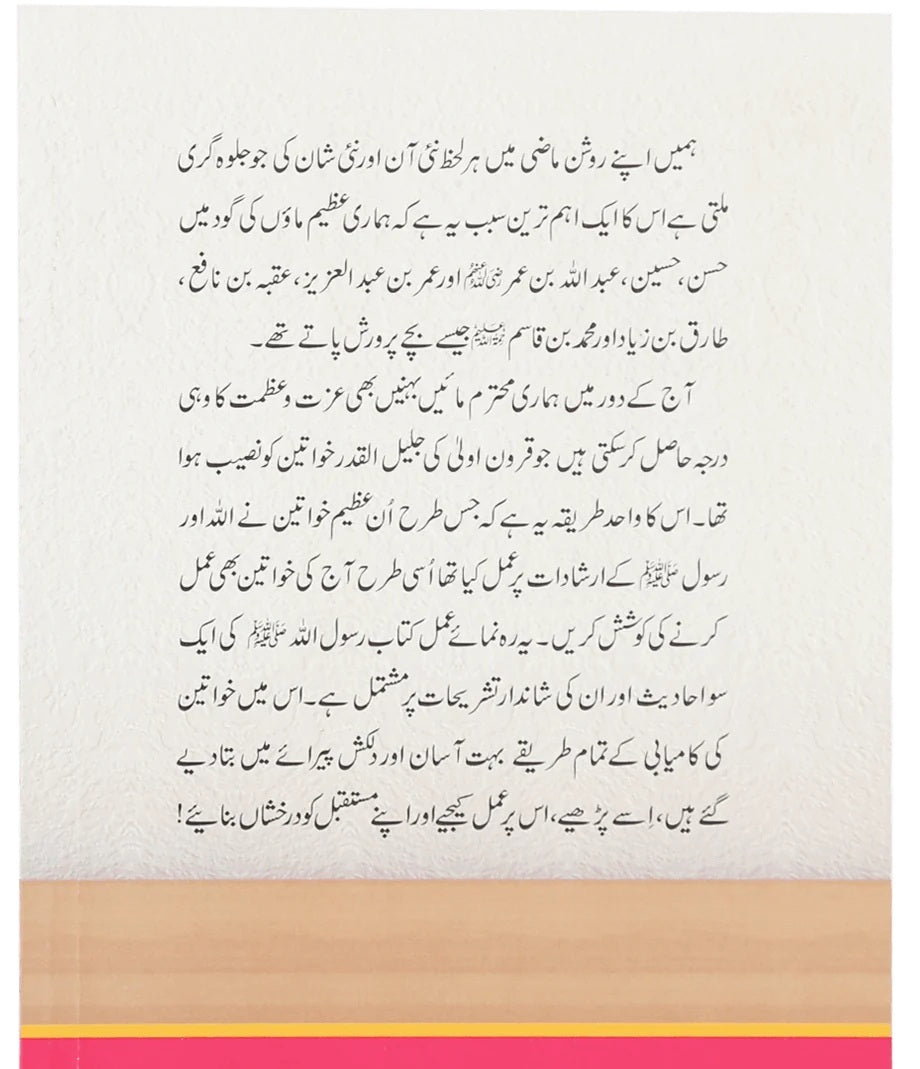 ہمیں اپنے روشن ماضی میں ہر لحظ نئی آن اور نئی شان کی جو جلوہ گری
ملتی ہے اس کا ایک اہم ترین سبب یہ ہے کہ ہماری عظیم ماؤں کی گود میں
حسن، حسین، عبد اللہ بن عمر رضی اللہ عنہم اور عمر بن عبد العزیز، عقبہ بن نافع،
طارق بن زیاد اور محمد بن قاسم رحمۃ اللہ علیہم جیسے بچے پرورش پاتے تھے۔
آج کے دور میں ہماری محترم مائیں بہنیں بھی عزت وعظمت کا وہی
درجہ حاصل کر سکتی ہیں جو قرون اولیٰ کی جلیل القدر خواتین کو نصیب ہوا
تھا۔ اس کا واحد طریقہ یہ ہے کہ جس طرح اُن عظیم خواتین نے اللہ اور
رسول ﷺ کے ارشادات پر عمل کیا تھا اُسی طرح آج کی خواتین بھی عمل
کرنے کی کوشش کریں۔ یہ رہ نمائے عمل کتاب رسول اللہ ﷺ کی ایک
سو احادیث اور ان کی شاندار تشریحات پر مشتمل ہے۔ اس میں خواتین
کی کامیابی کے تمام طریقے بہت آسان اور دلکش پیرائے میں بتا دیے
گئے ہیں، اِسے پڑھیے، اس پر عمل کیجیے اور اپنے مستقبل کو درخشاں بنائیے!